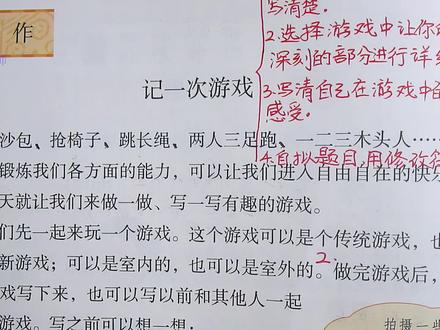 作
写清楚.
2.选择游戏中让你
深刻的部分进行详
3.写清自己在游戏中的
感受.
4.自拟题目,用修改符
记一次游戏
沙包、抢椅子、跳长绳、两人三足跑、一二三木头人……
锻炼我们各方面的能力，可以让我们进入自由自在的快乐
天就让我们来做一做、写一写有趣的游戏。
们先一起来玩一个游戏。这个游戏可以是个传统游戏，也
新游戏；可以是室内的，也可以是室外的。2.做完游戏后，
戏写下来，也可以写以前和其他人一起
游戏。写之前可以想一想：
拍摄一些